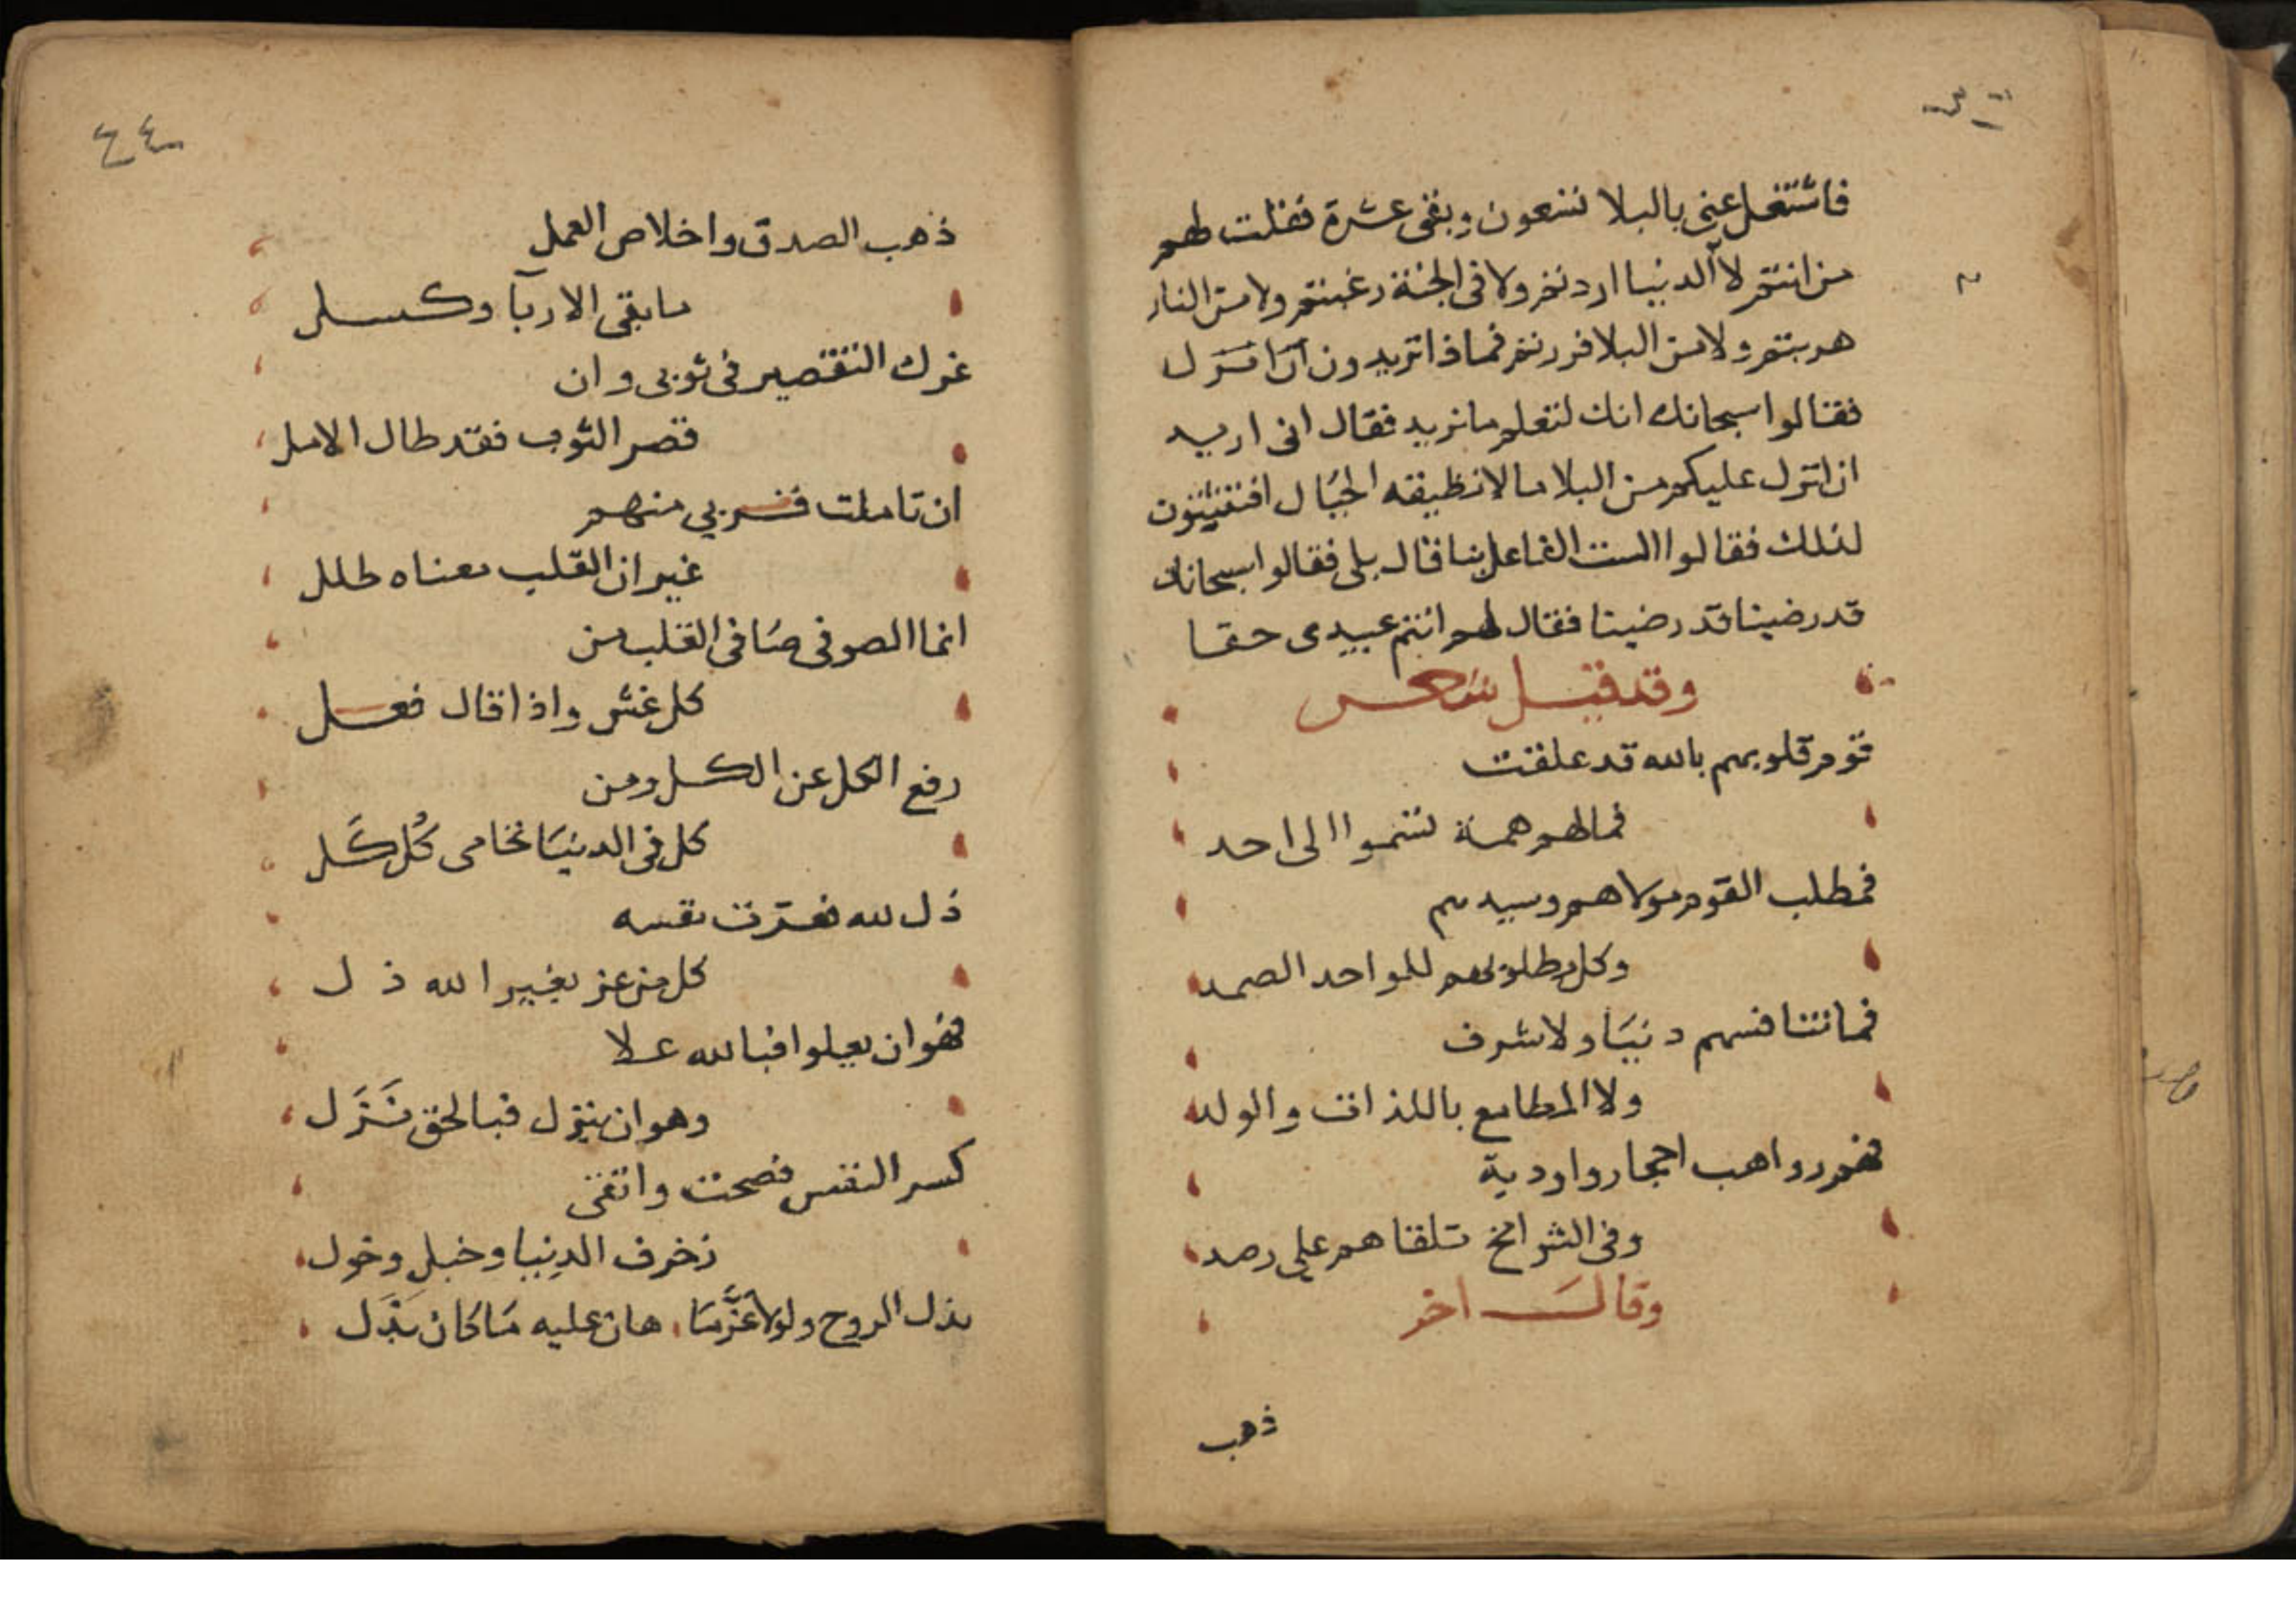 فاشتغل عني بالبلا تسعون وبقى عشرة فقلت لهم
من انتم لا الدنيا اردتم ولا في الجنة رغبتم ولا من النار
هربتم ولا من البلا فررتم فماذا تريدون
فقالوا سبحانك انك لتعلم ما نريد فقال انى اريد
ان انزل عليكم من البلا ما لا تطيقه الجبال افتثبتون
لذلك فقالوا الست الفاعل بنا قال بلى فقالوا سبحانك
قد رضينا قد رضينا فقال لهم انتم عبيدى حقا
وقد قيل شعر
قوم قلوبهم بالله قد علقت
فما لهم همة تسموا الى احد
فمطلب القوم مولاهم وسيدهم
وكل مطلوبهم للواحد الصمد
فما تنافسهم دنيا ولا شرف
ولا المطامع باللذات والولد
فهم رواهب احجار واودية
وفى الشوامخ تلقاهم على رصد
وقال اخر
ذهب
٤٤
ذهب الصدق واخلاص العمل
ما بقى الا ريا وكسل
غرك التقصير فى ثوبى وان
قصر الثوب فقد طال الامل
ان تاملت فزيي منهم
غير ان القلب معناه طلل
انما الصوفى صافى القلب من
كل غش واذا قال فعل
رفع الكل عن الكل ومن
كل فى الدنيا تحامى كُل كَل
ذل لله فعزت نفسه
كل من عز بغير الله ذل
فهو ان يعلوا فبالله علا
وهو ان ينزل فبالحق نَزَل
كسر النفس فصحت واتقى
زخرف الدنيا وخيل وخول
بذل الروح ولولا عزما هان عليه ما كان بذل